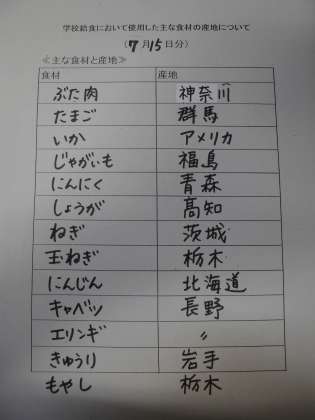 学校給食において使用した主な食材の産地について
(7月15日分)
≪主な食材と産地≫
食材 産地
ぶた肉 神奈川
たまご 群馬
いか アメリカ
じゃがいも 福島
にんにく 青森
しょうが 高知
ねぎ 茨城
玉ねぎ 栃木
にんじん 北海道
キャベツ 長野
エリンギ 〃
きゅうり 岩手
もやし 栃木